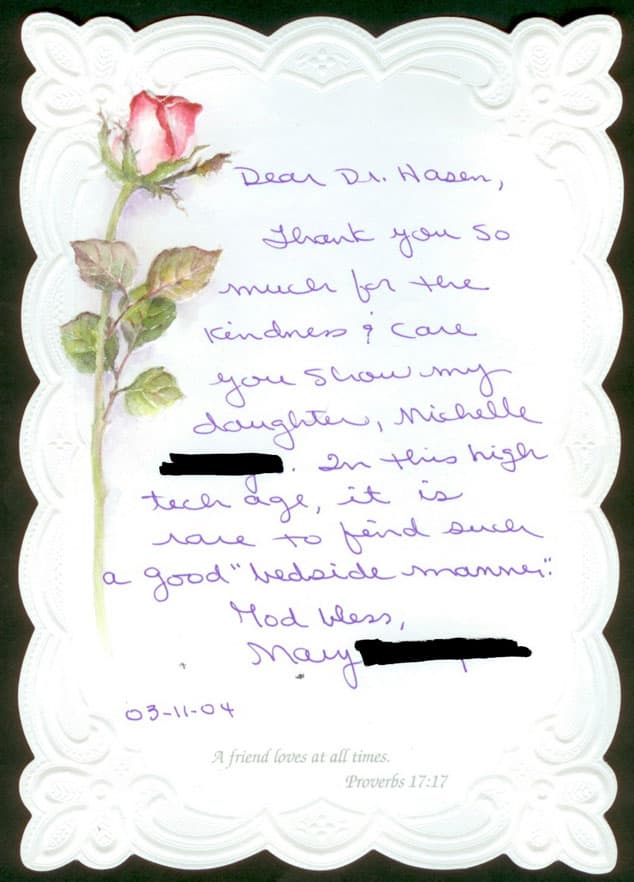 Dear Dr. Hasen,
Thank you so
much for the
kindness & care
you show my
daughter, Michelle
. In this high
tech age, it is
rare to find such
a good "bedside manner".
God bless,
Mary
03-11-04
A friend loves at all times.
Proverbs 17:17